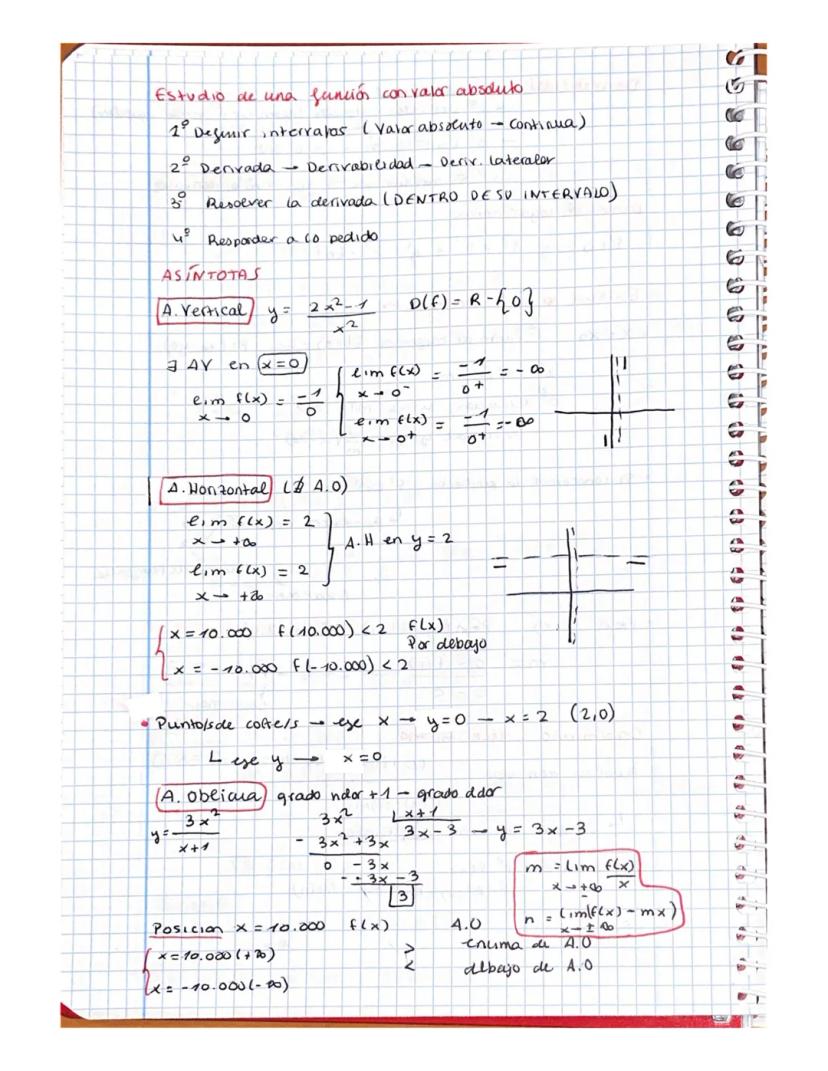 Estudio de una función con valor absoluto
1º Definir intervalos (Valor absoluto → Continua)
2º Derivada → Derivabilidad → Deriv. laterales
3º Resolver la derivada (DENTRO DE SU INTERVALO)
4º Responder a lo pedido
ASÍNTOTAS
A. Vertical y = (2x²-1)/x² D(f) = R - {0}
∃ AV en x=0
lim f(x) x→0 = -1/0
lim f(x) x→0⁻ = -1/0⁺ = -∞
lim f(x) x→0⁺ = -1/0⁺ = -∞
A. Horizontal (∄ A.O)
lim f(x) = 2 x→+∞
lim f(x) = 2 x→+∞
A.H en y = 2
x = 10.000 f(10.000) < 2 f(x)
Por debajo
x = -10.000 f(-10.000) < 2
• Punto/s de corte/s → eje x → y=0 → x=2 (2,0)
L eje y → x=0
A. Oblicua grado ndor +1 - grado ddor
y = 3x²/(x+1)
3x² | x+1
- 3x² + 3x 3x-3 → y = 3x-3
0 -3x
- -3x -3
3
m = lim f(x)/x x→±∞
n = lim (f(x) - mx) x→±∞
Posicion x = 10.000 f(x) A.O
x = 10.000 (+∞) > encima de A.O
x = -10.000 (-∞) < debajo de A.O